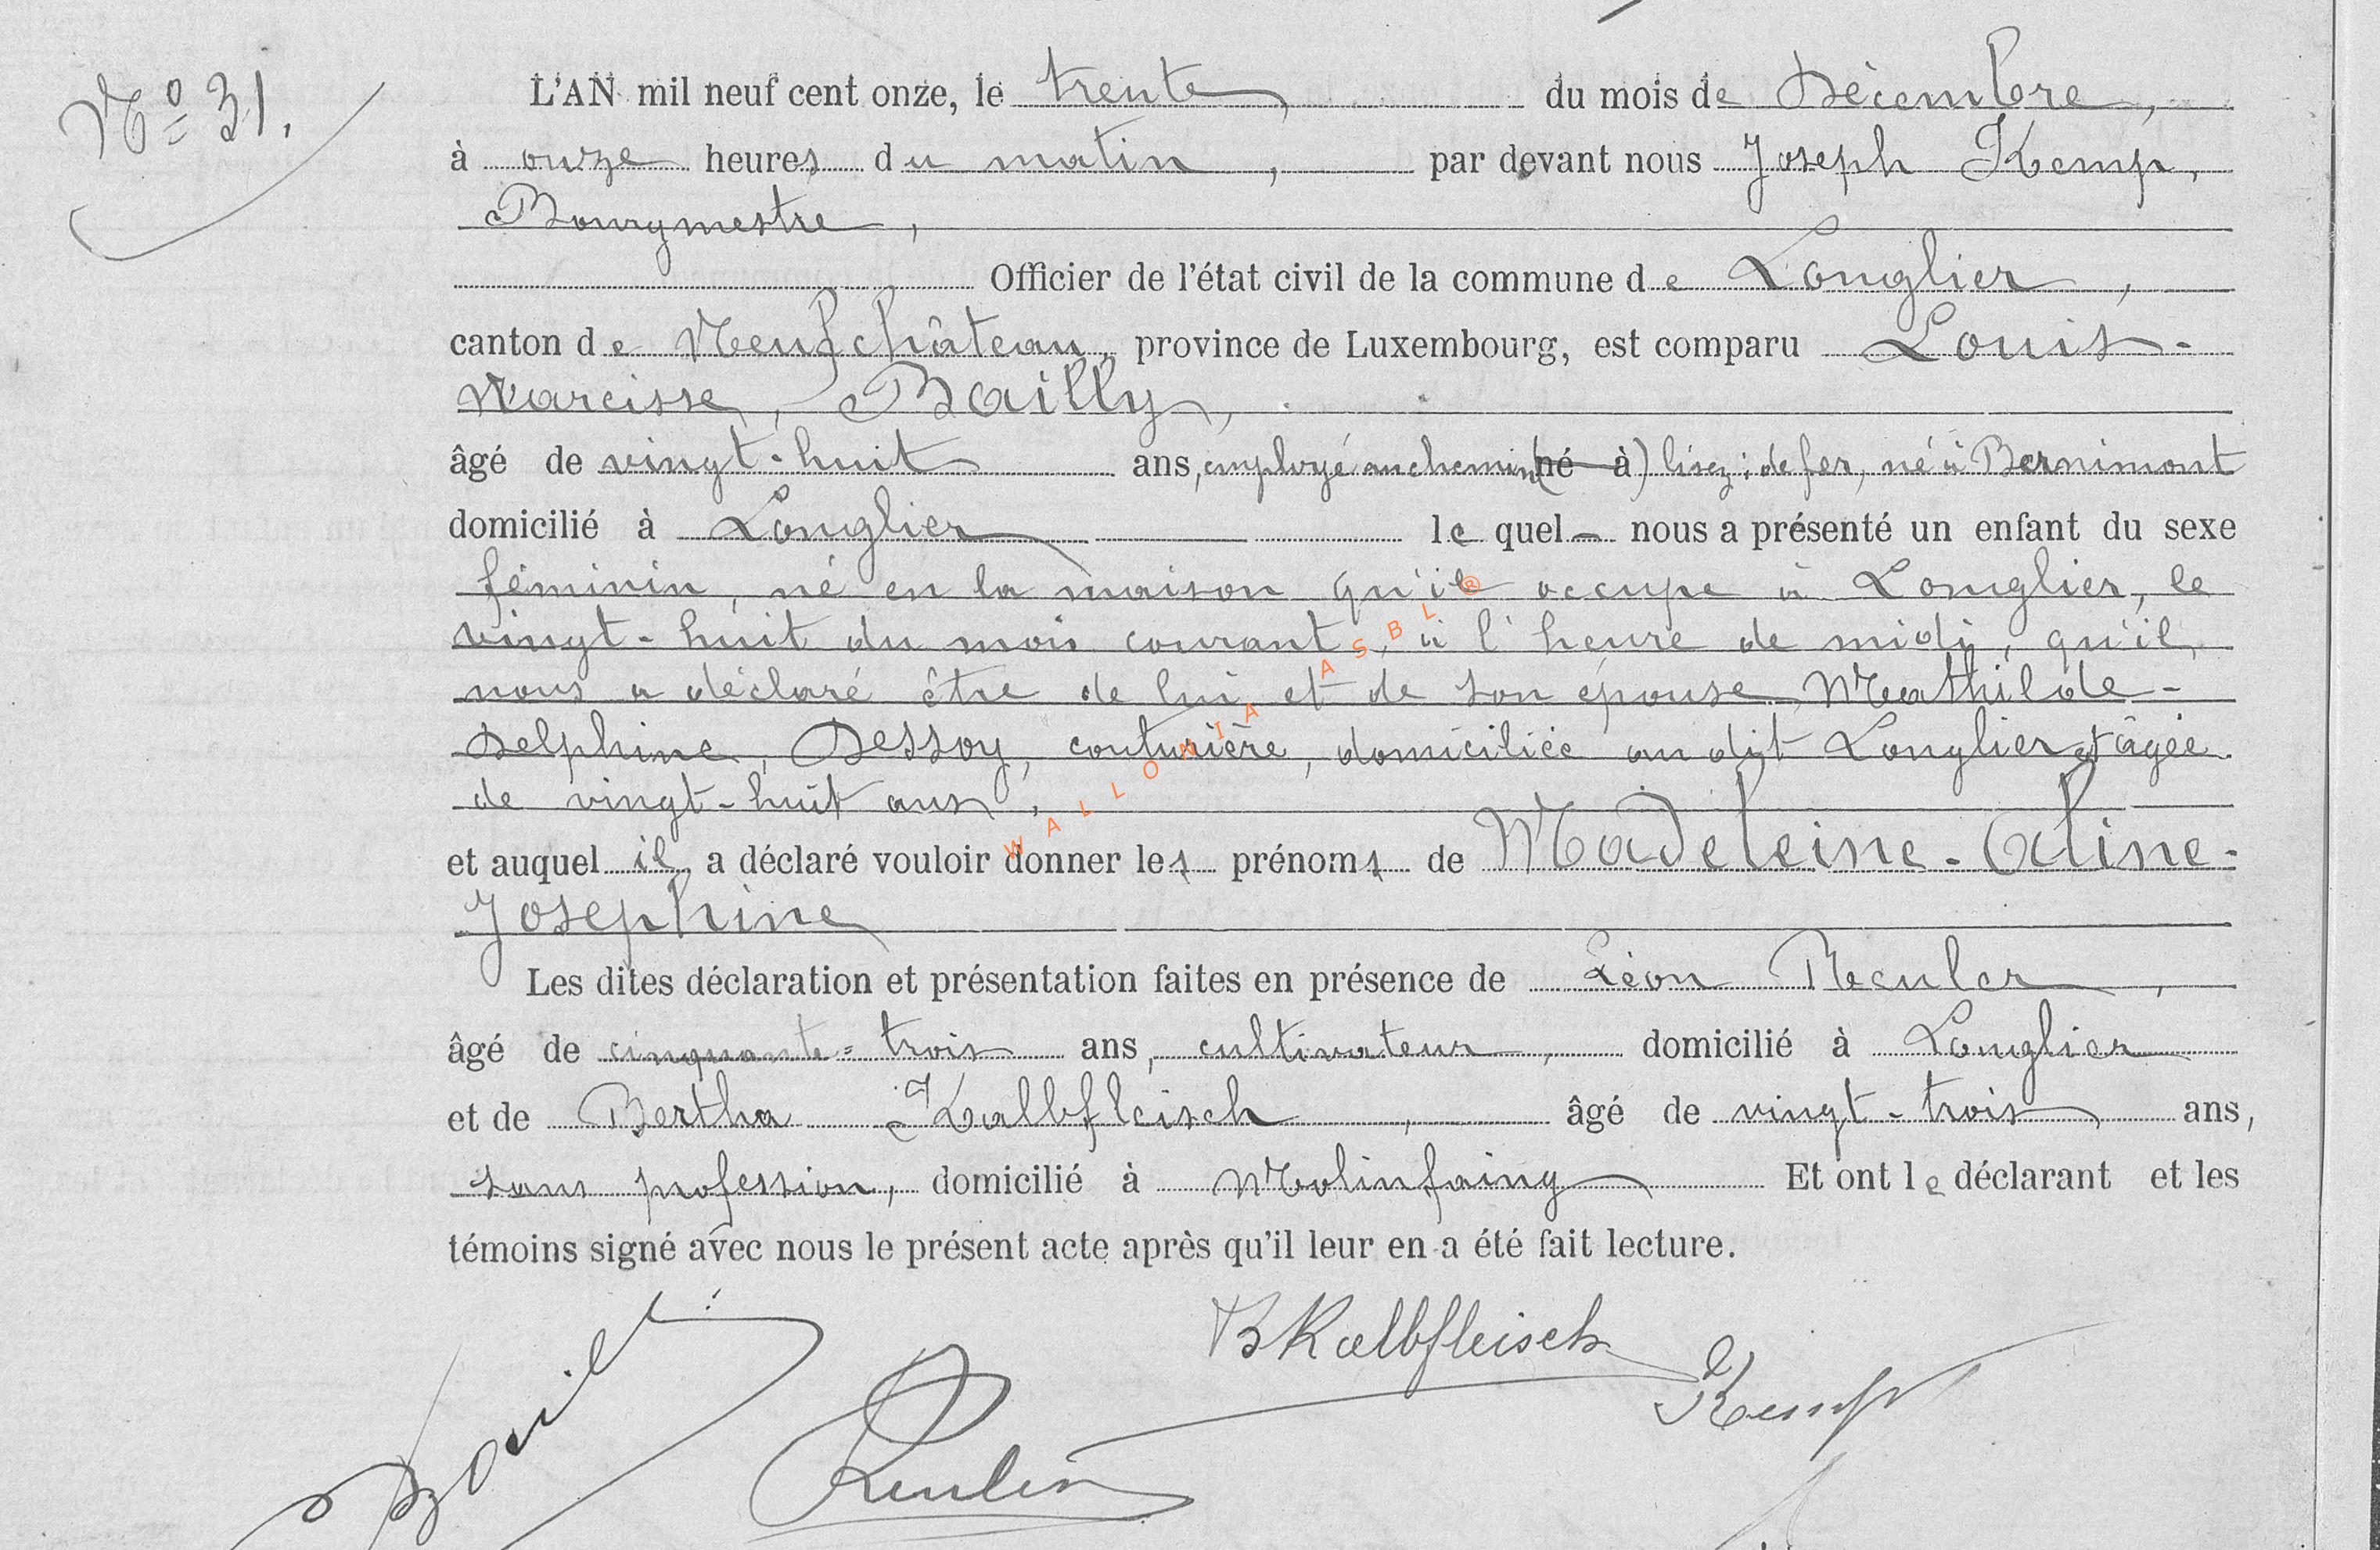 N° 31.
L'AN mil neuf cent onze, le trente, du mois de Décembre,
à onze heures du matin, par devant nous Joseph Kemp,
Bourgmestre,
Officier de l'état civil de la commune de Longlier,
canton de Neufchâteau, province de Luxembourg, est comparu Louis-
Narcisse, Bailly,
âgé de vingt-huit ans, employé au chemin (né à) lisez: de fer, né à Bernimont
domicilié à Longlier lequel nous a présenté un enfant du sexe
féminin, né en la maison qu'il occupe à Longlier, le
vingt-huit du mois courant, à l'heure de midi, qu'il
nous a déclaré être de lui et de son épouse Mathilde-
Delphine, Dessoy, couturière, domiciliée au dit Longlier et âgée
de vingt-huit ans,
et auquel il a déclaré vouloir donner les prénoms de Madeleine-Aline-
Joséphine
Les dites déclaration et présentation faites en présence de Léon Reuler,
âgé de cinquante-trois ans, cultivateur, domicilié à Longlier
et de Bertha Kalbfleisch, âgé de vingt-trois ans,
sans profession, domicilié à Molinfaing Et ont le déclarant et les
témoins signé avec nous le présent acte après qu'il leur en a été fait lecture.
BKalbfleisch
Bailly
Kemp
Reuler
WALLONIA ASBL ®